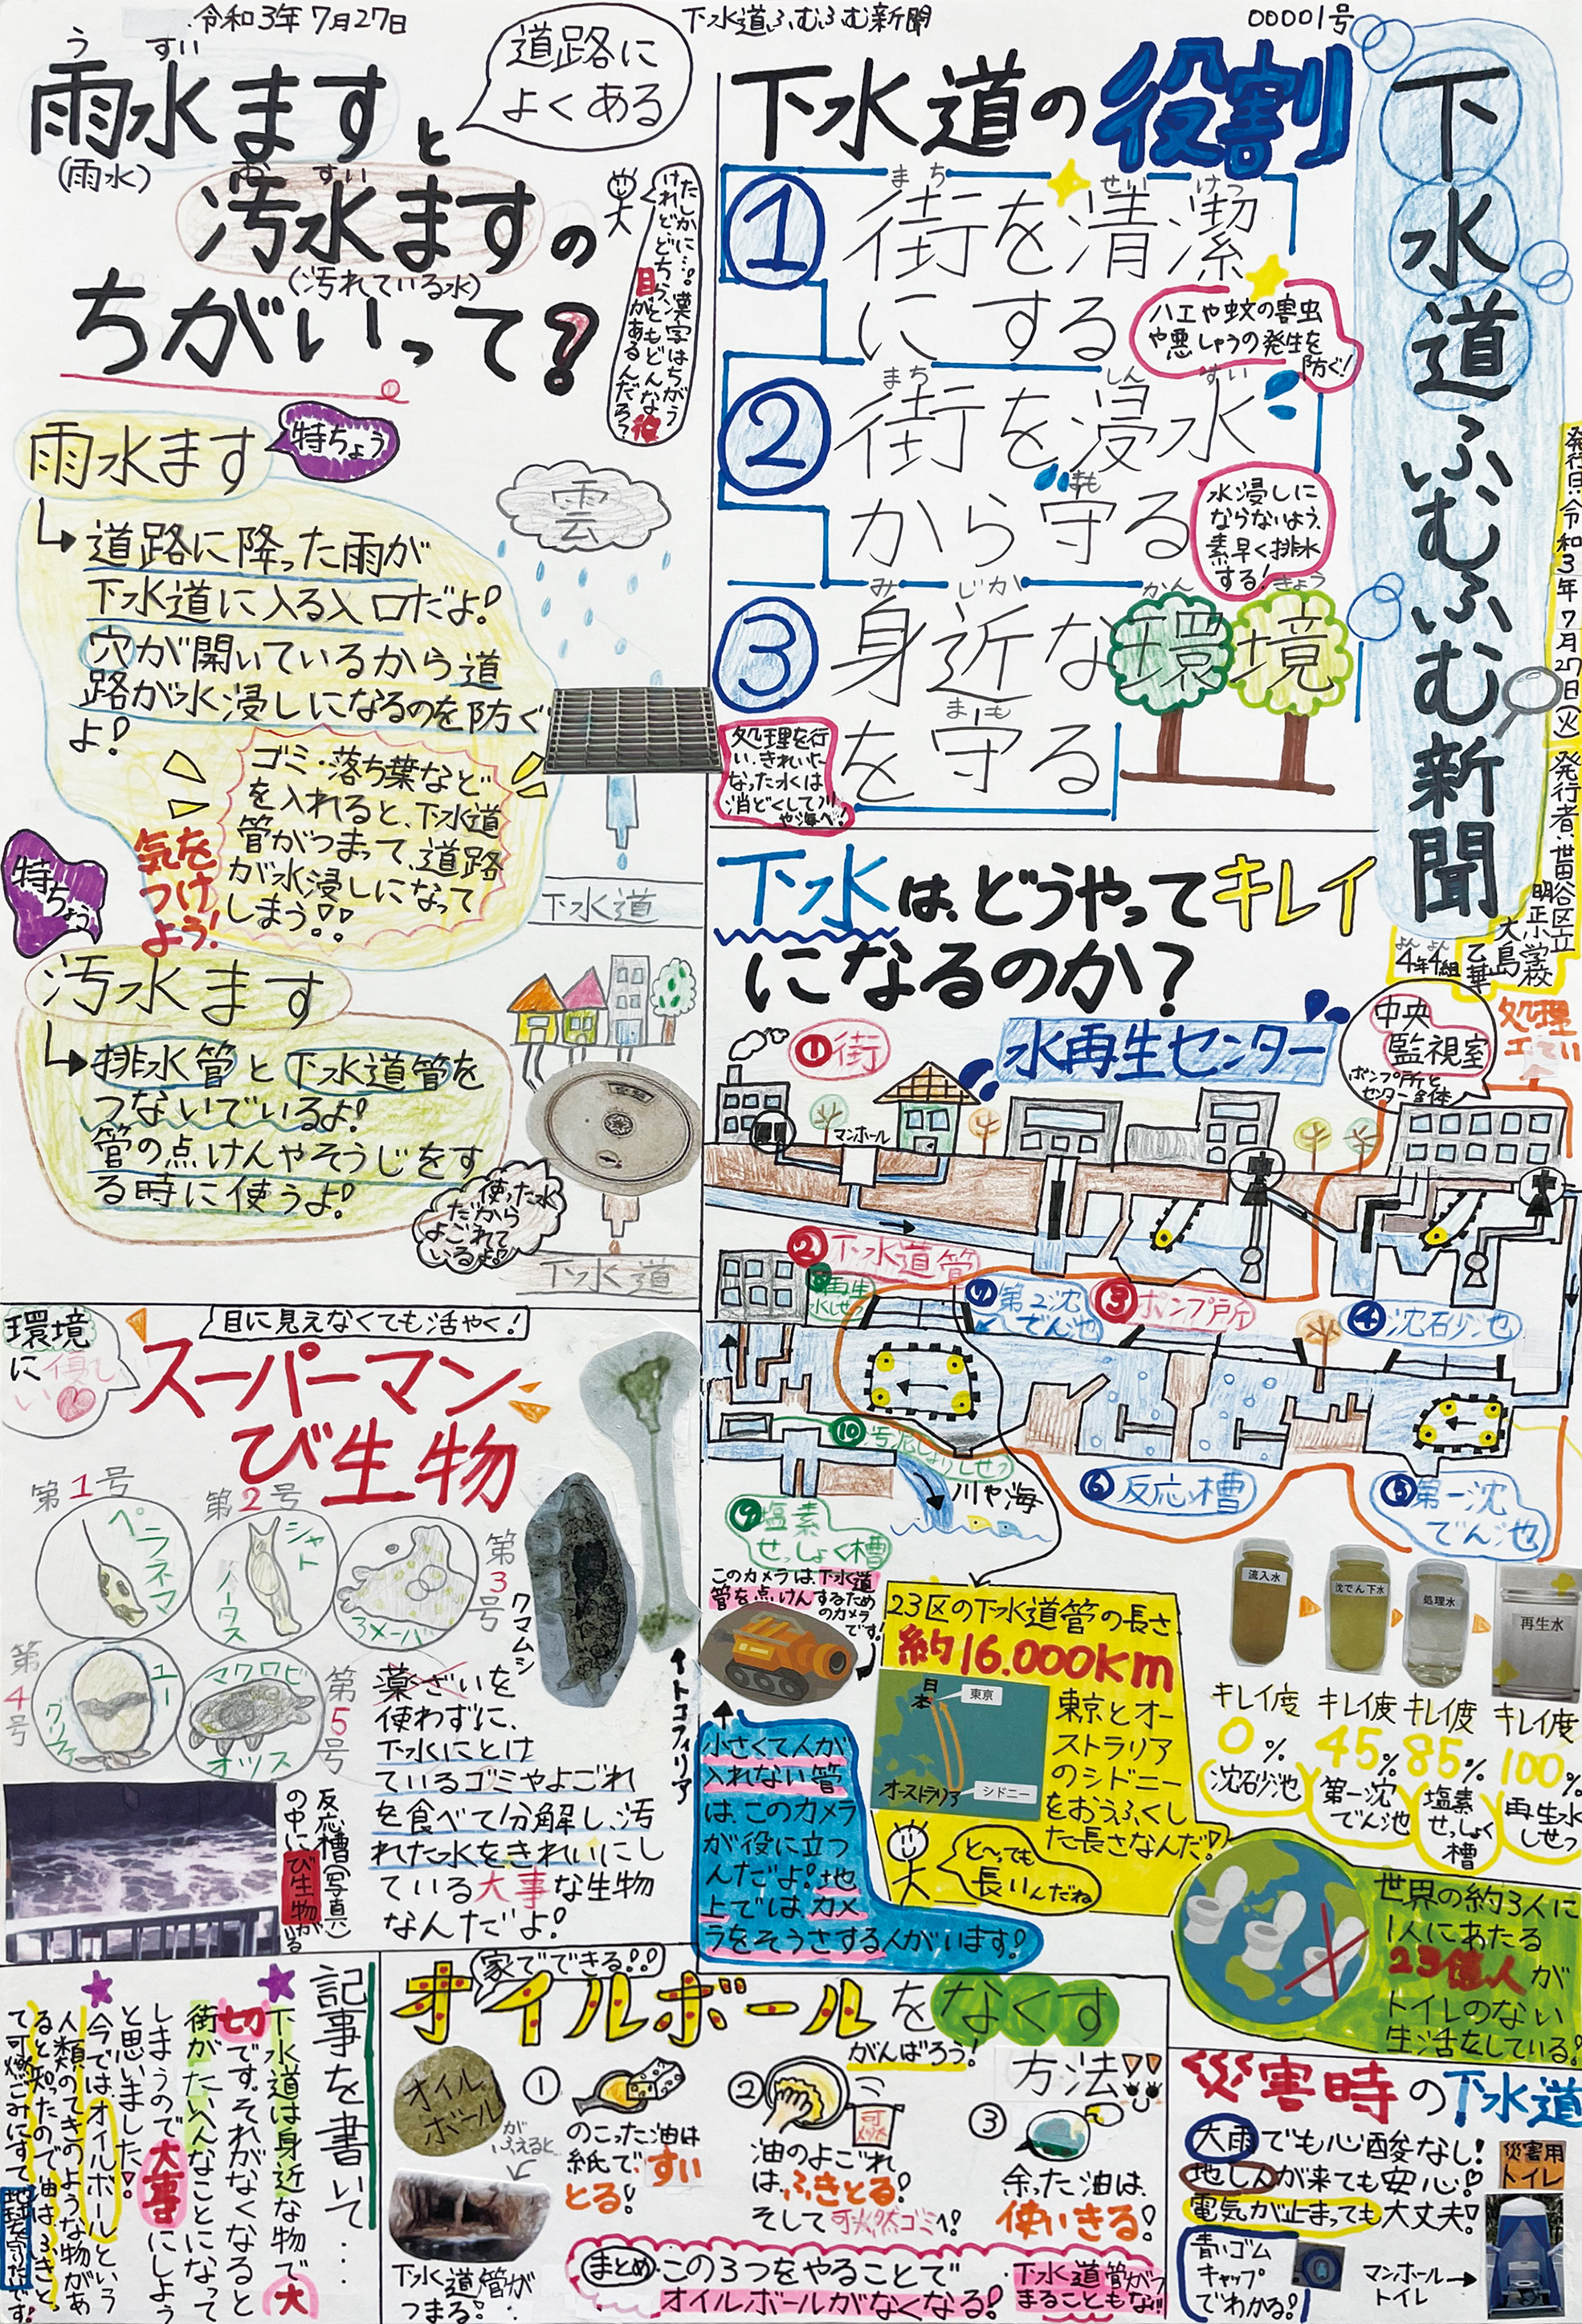 令和3年7月27日
下水道ふむふむ新聞
00001号
下水道ふむふむ新聞
発行日:令和3年7月27日(火)
発行者:世田谷区立
明正小学校
4年4組
大島
乙華
下水道の役割
① 街を清潔
にする
ハエや蚊の害虫
や悪しゅうの発生を
防ぐ!
② 街を浸水
から守る
水浸しに
ならないよう、
素早く排水
する!
③ 身近な環境
を守る
処理を行
い、きれいに
なった水は
消どくして川
や海へ!
雨水ますと
(雨水)
汚水ますの
(汚れている水)
ちがいって?
道路に
よくある
たしかに…。漢字はちがう
けれど、どちらともどんな役
目があるんだろ?
雨水ます
特ちょう
道路に降った雨が
下水道に入る入口だよ!
穴が開いているから道
路が水浸しになるのを防ぐ
よ!
ゴミ・落ち葉など
を入れると、下水道
管がつまって、道路
が水浸しになって
しまう!!
気を
つけ
よう!
雲
下水道
特ちょう
汚水ます
排水管と下水道管を
つないでいるよ!
管の点けんやそうじをす
る時に使うよ!
使った水
だから
よごれて
いるよ!
下水道
下水は、どうやってキレイ
になるのか?
水再生センター
中央
監視室
ポンプ所と
センター全体
処理
工てい
①街
マンホール
②下水道管
③ポンプ所
④沈砂池
⑤第一沈
でん池
⑥反応槽
⑦第2沈
でん池
⑧再生
水しせつ
⑨塩素
せっしょく槽
⑩汚泥し
ょりしせつ
川や海
流入水
沈でん下水
処理水
再生水
キレイ度
0%
沈砂池
キレイ度
45%
第一沈
でん池
キレイ度
85%
塩素
せっしょく
槽
キレイ度
100%
再生水
しせつ
このカメラは、下水道
管を点けんするため
のカメラ
です!
小さくて人が
入れない管
は、このカメラ
が役に立つ
んだよ!地
上では、カメ
ラをそうさする人がいます!
23区の下水道管の長さ
約16.000km
日本
東京
オーストラリア
シドニー
東京とオー
ストラリア
のシドニー
をおうふくし
た長さなんだ!
と〜っても
長いんだね
世界の約3人に
1人にあたる
23億人が
トイレのない
生活をしている!
環境
に優し
い
目に見えなくても活やく!
スーパーマン
び生物
第1号
ペラネマ
第2号
シャト
ノータス
第3号
アメーバ
第4号
ユー
グリファ
第5号
マクロビ
オツス
クマムシ
トコフィリア
薬ざいを
使わずに、
下水にとけ
ているゴミやよごれ
を食べて分解し、汚
れた水をきれいにし
ている大事な生物
なんだよ!
反応槽(写真)
の中にび生物がいる
記事を書いて…
下水道は身近な物で大
切です。それがなくなると
街がたいへんなことになって
しまうので大事にしよう
と思いました!
今ではオイルボールという
人類のてきのような物があ
ると知ったので油は、ふきとっ
て可燃ごみにすて地球を守りたいです!
家でできる!!
オイルボールをなくす
がんばろう!
方法!!
オイル
ボール
が
ふえると
下水道管が
つまる!
①
のこった油は
紙で、すい
とる!
②
油のよごれ
は、ふきとる!
そして可燃ゴミへ!
③
余った油は、
使いきる!
まとめ この3つをやることで
オイルボールがなくなる!
下水道管がつ
まることもない!!
災害時の下水道
大雨でも心酸なし!
地しんが来ても安心!
電気が止まっても大丈夫!
青いゴム
キャップ
でわかる!
マンホール
トイレ
災害用
トイレ